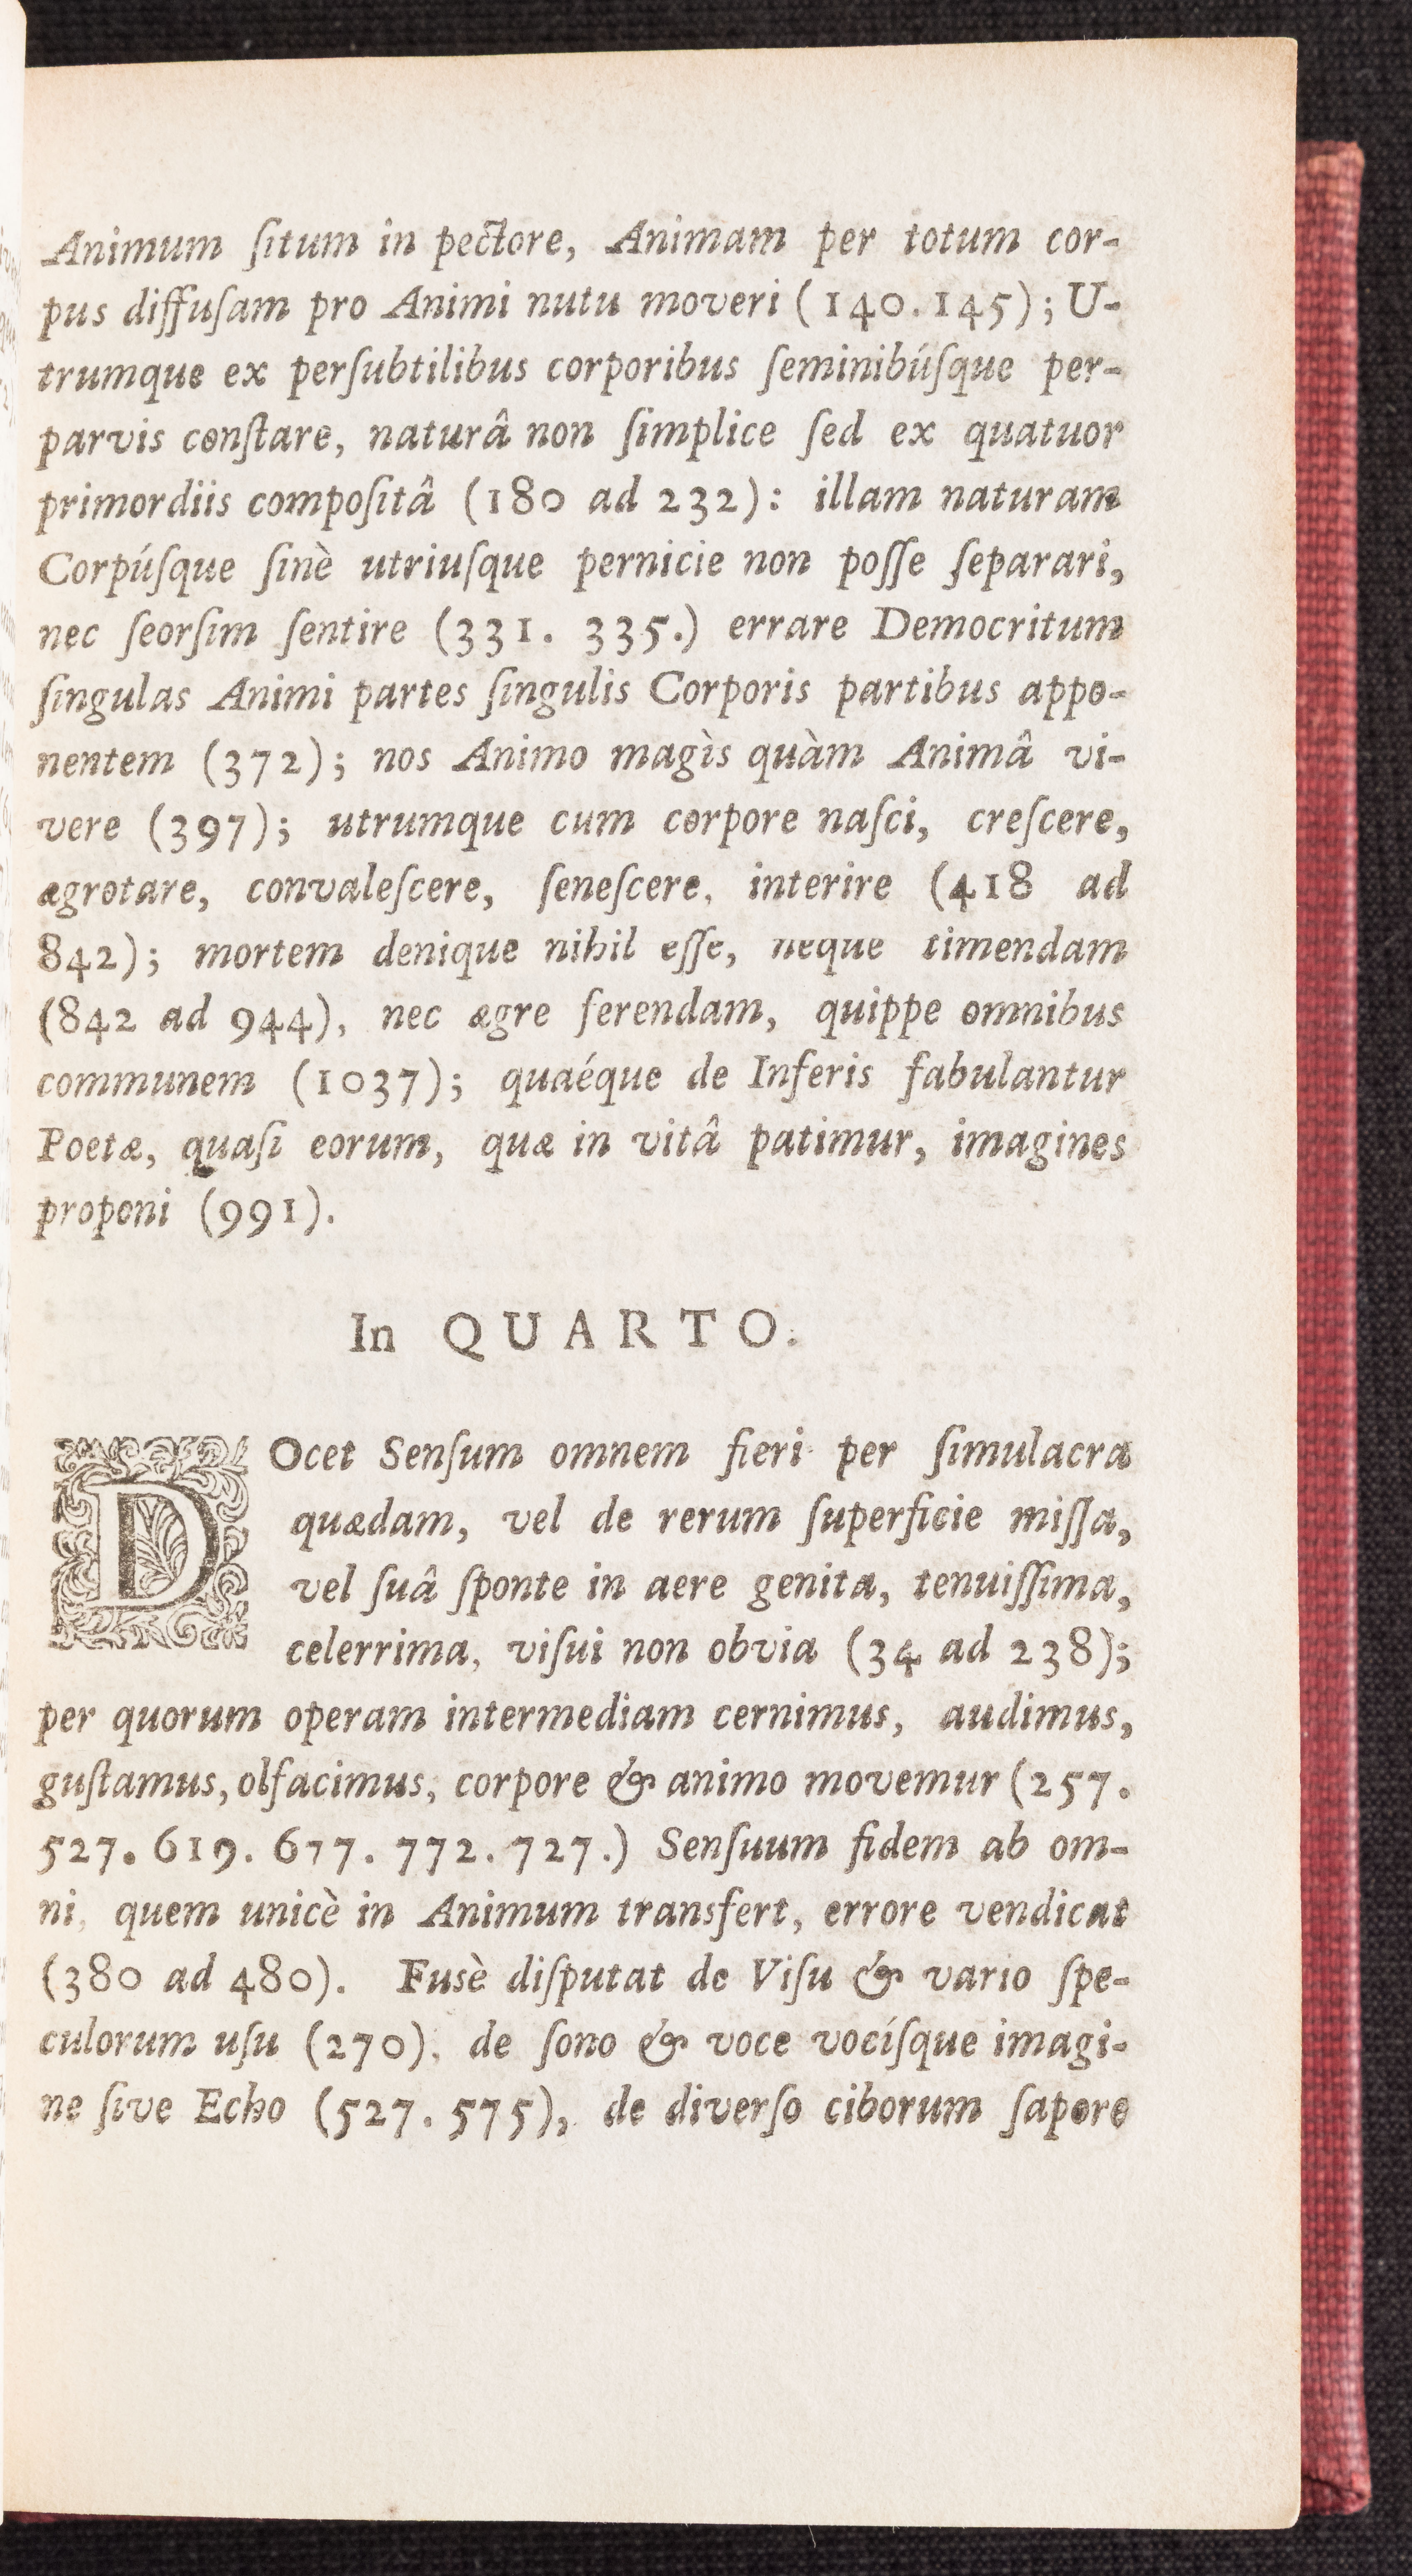 Animum ſitum in pectore, Animam per totum cor-
pus diffuſam pro Animi nutu moveri (140.145); U-
trumque ex perſubtilibus corporibus ſeminibúſque per-
parvis conſtare, naturâ non ſimplice ſed ex quatuor
primordiis compoſitâ (180 ad 232): illam naturam
Corpúſque ſinè utriuſque pernicie non poſſe ſeparari,
nec ſeorſim ſentire (331. 335.) errare Democritum
ſingulas Animi partes ſingulis Corporis partibus appo-
nentem (372); nos Animo magìs quàm Animâ vi-
vere (397); utrumque cum corpore naſci, creſcere,
ægrotare, convaleſcere, ſeneſcere, interire (418 ad
842); mortem denique nihil eſſe, neque timendam
(842 ad 944), nec ægre ferendam, quippe omnibus
communem (1037); quaéque de Inferis fabulantur
Poetæ, quaſi eorum, quæ in vitâ patimur, imagines
proponi (991).
In QUARTO.
DOcet Senſum omnem fieri per ſimulacra
quædam, vel de rerum ſuperficie miſſa,
vel ſuâ ſponte in aere genita, tenuiſſima,
celerrima, viſui non obvia (34 ad 238);
per quorum operam intermediam cernimus, audimus,
guſtamus, olfacimus, corpore & animo movemur (257.
527. 619. 677. 772. 727.) Senſuum fidem ab om-
ni, quem unicè in Animum transfert, errore vendicat
(380 ad 480). Fusè diſputat de Viſu & vario ſpe-
culorum uſu (270), de ſono & voce vocíſque imagi-
ne ſive Echo (527. 575), de diverſo ciborum ſapore